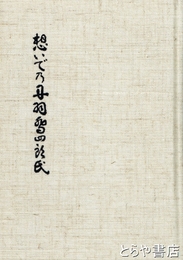 想いでの丹羽喬四郎氏
とらや書店